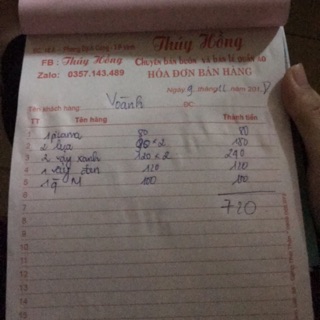 Thúy Hồng
FB : Thúy Hồng Chuyên bán buôn và bán lẻ quần áo
Zalo: 0357.143.489 HÓA ĐƠN BÁN HÀNG
Ngày 9 tháng 11 năm 201
Tên khách hàng: Voành ĐC:
TT Tên hàng Thành tiền
1 80 80
2 2 lụa 90 x 2 180
3 2 váy xanh 120 x 2 240
4 1 váy 120 120
5 1 q M 100 100
6 720
7
8
9
10
11
12
13
14
15